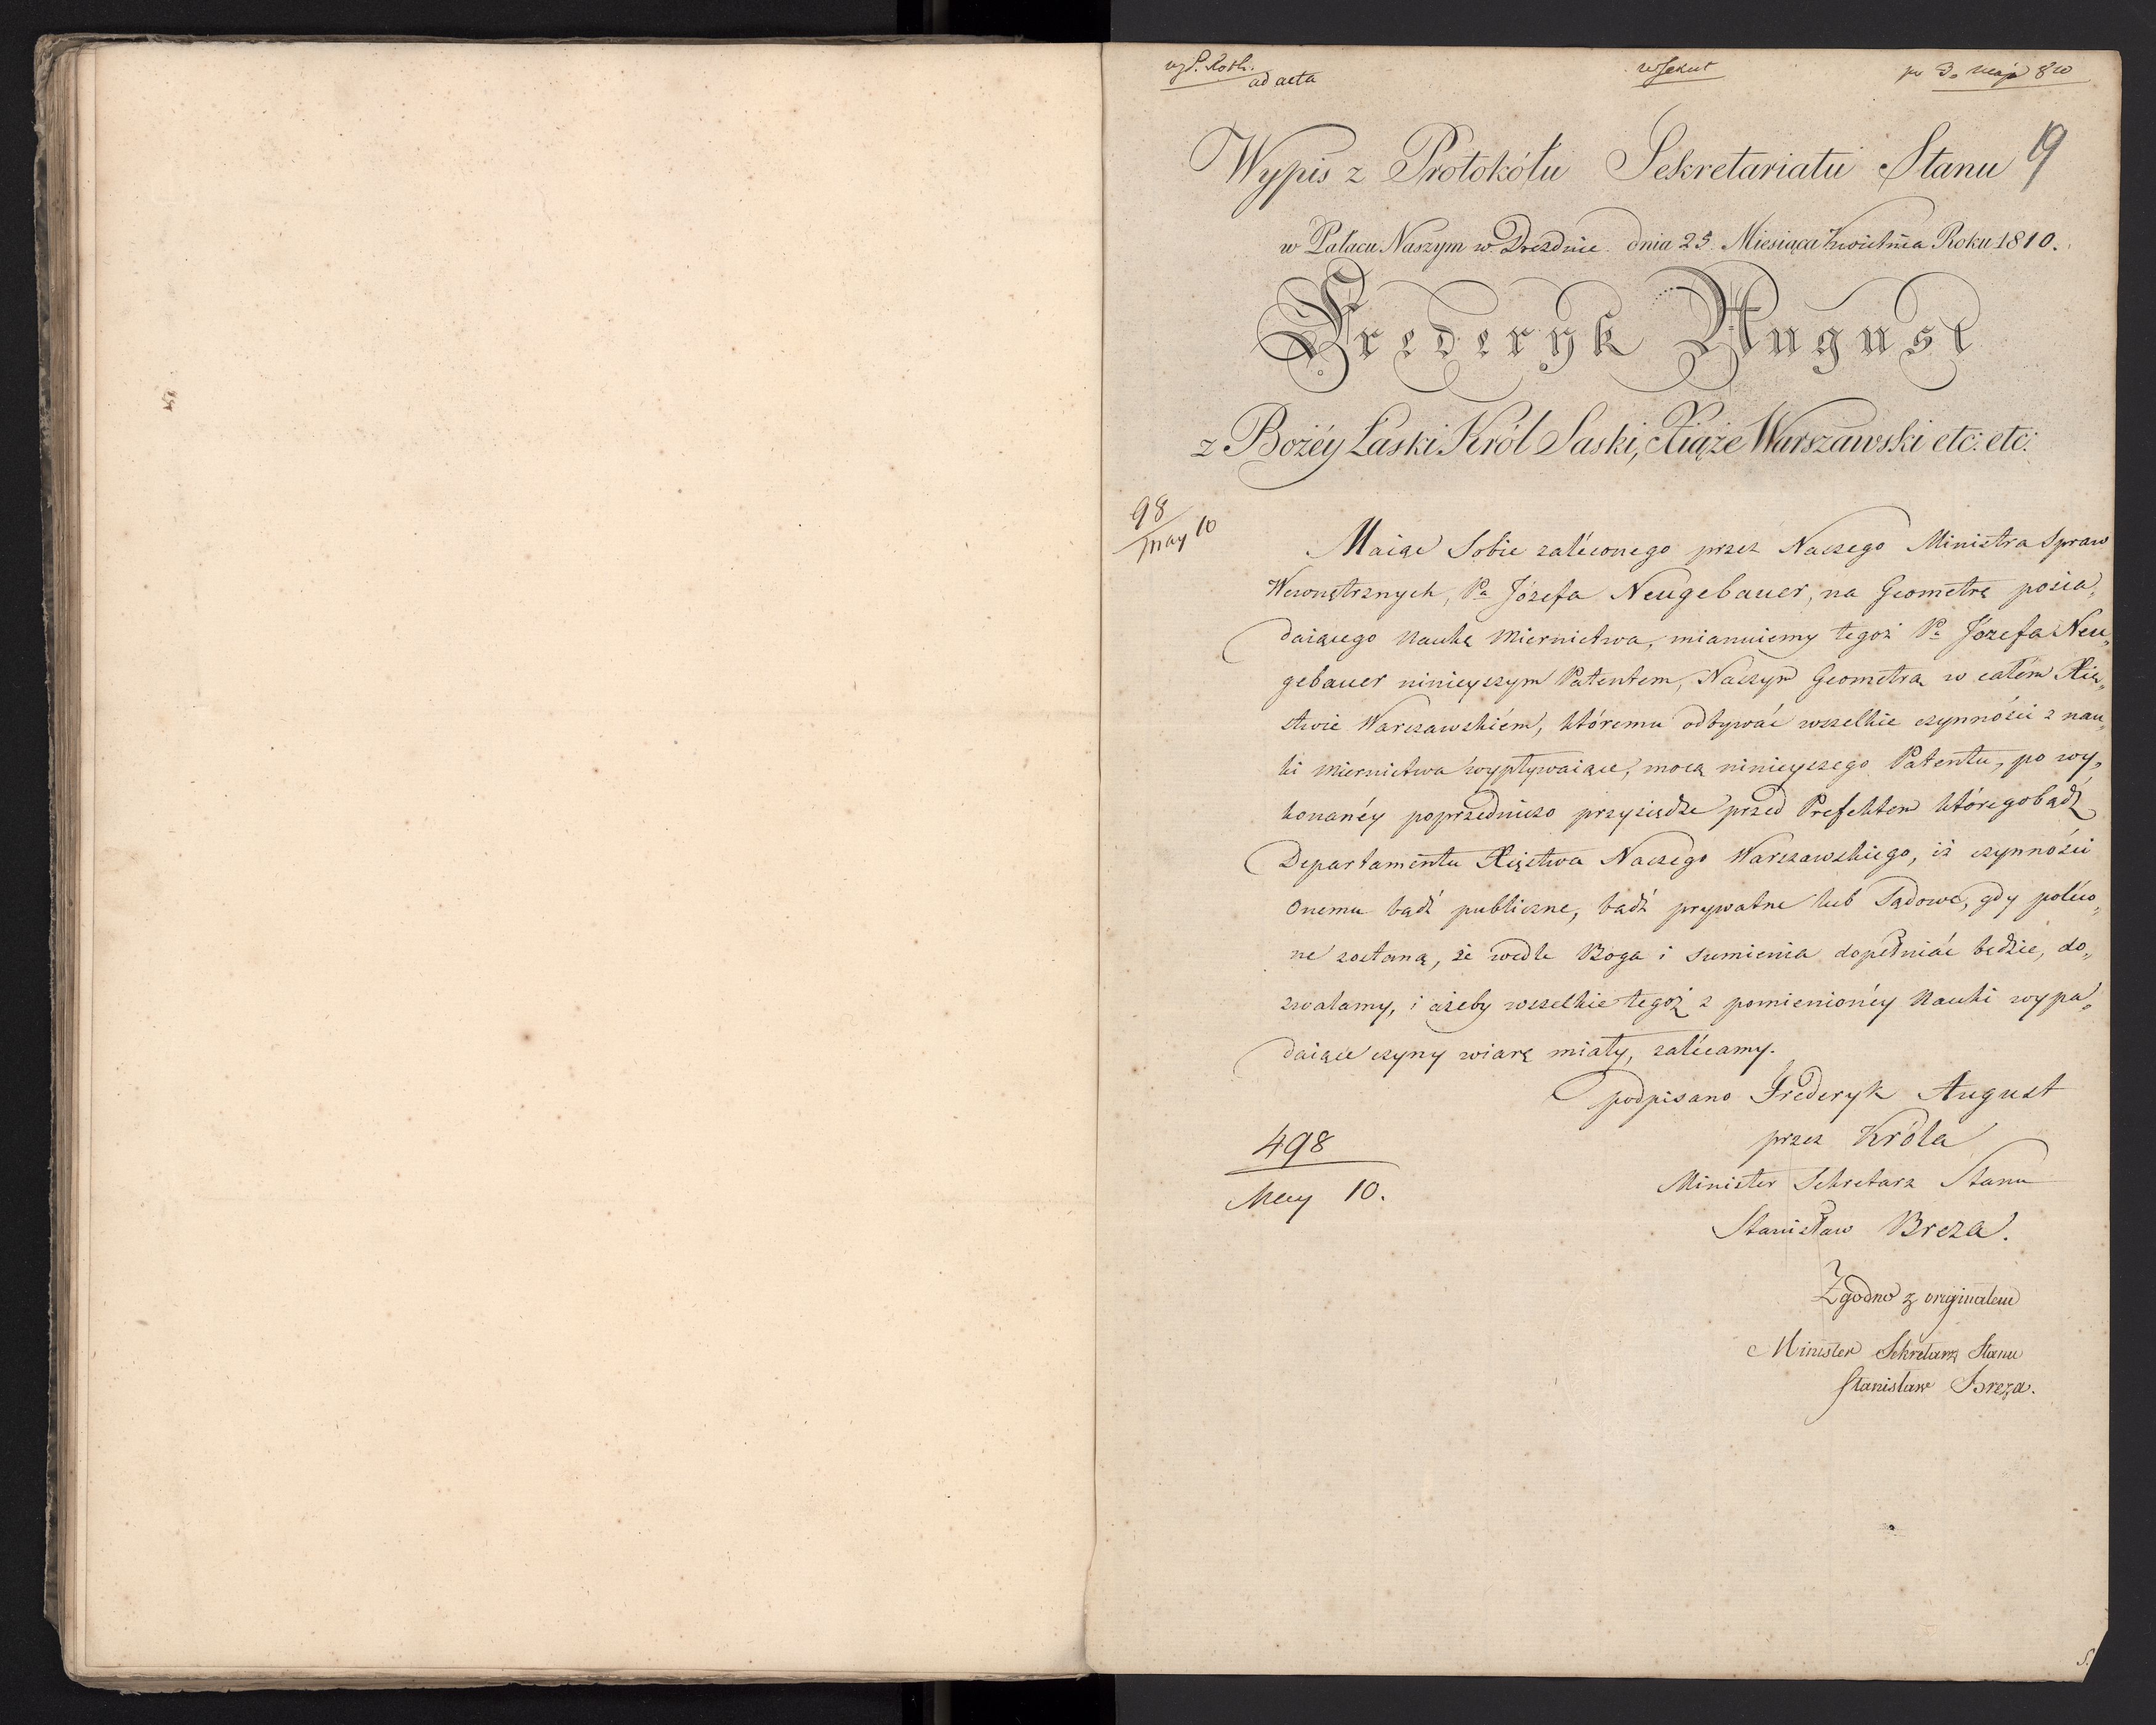 ad acta
19
Wypis z Protokółu Sekretariatu Stanu
w Pałacu Naszym w Dreźdnie dnia 25 Miesiąca Kwietnia Roku 1810.
Frederyk August
z Bożéy Łaski Król Saski, Xiąże Warszawski etc: etc:
98
May 10
Maiąc Sobie zaléconego przez Naszego Ministra Spraw
Wewnętrznych, Pa Józefa Neugebauer, na Geometrę posia„
daiącego Naukę Miernictwa, mianuiemy tegoż Pa Józefa Neu„
gebauer ninieyszym Patentem, Naszym Geometrą w całém Xię„
stwie Warszawskiém, któremu odbywać wszelkie czynności z nau„
ki Miernictwa wypływaiące, mocą ninieyszego Patentu, po wy„
konanéy poprzedniczo przysiędze przed Prefektem któregobądź
Departamentu Xięstwa Naszego Warszawskiego, iż czynności
Onemu bądź publiczne, bądź prywatne lub Sądowe, gdy poléco„
ne zostaną, że wedle Boga i sumienia dopełniać będzie, do„
zwalamy, i ażeby wszelkie tegoż z pomienionéy Nauki wypa„
daiące czyny wiarę miały, zalécamy.
podpisano Frederyk August
przez Króla
Minister Sekretarz Stanu
Stanisław Breza.
498
May 10.
Zgodno z oryginałem
Minister Sekretarz Stanu
Stanisław Breza.